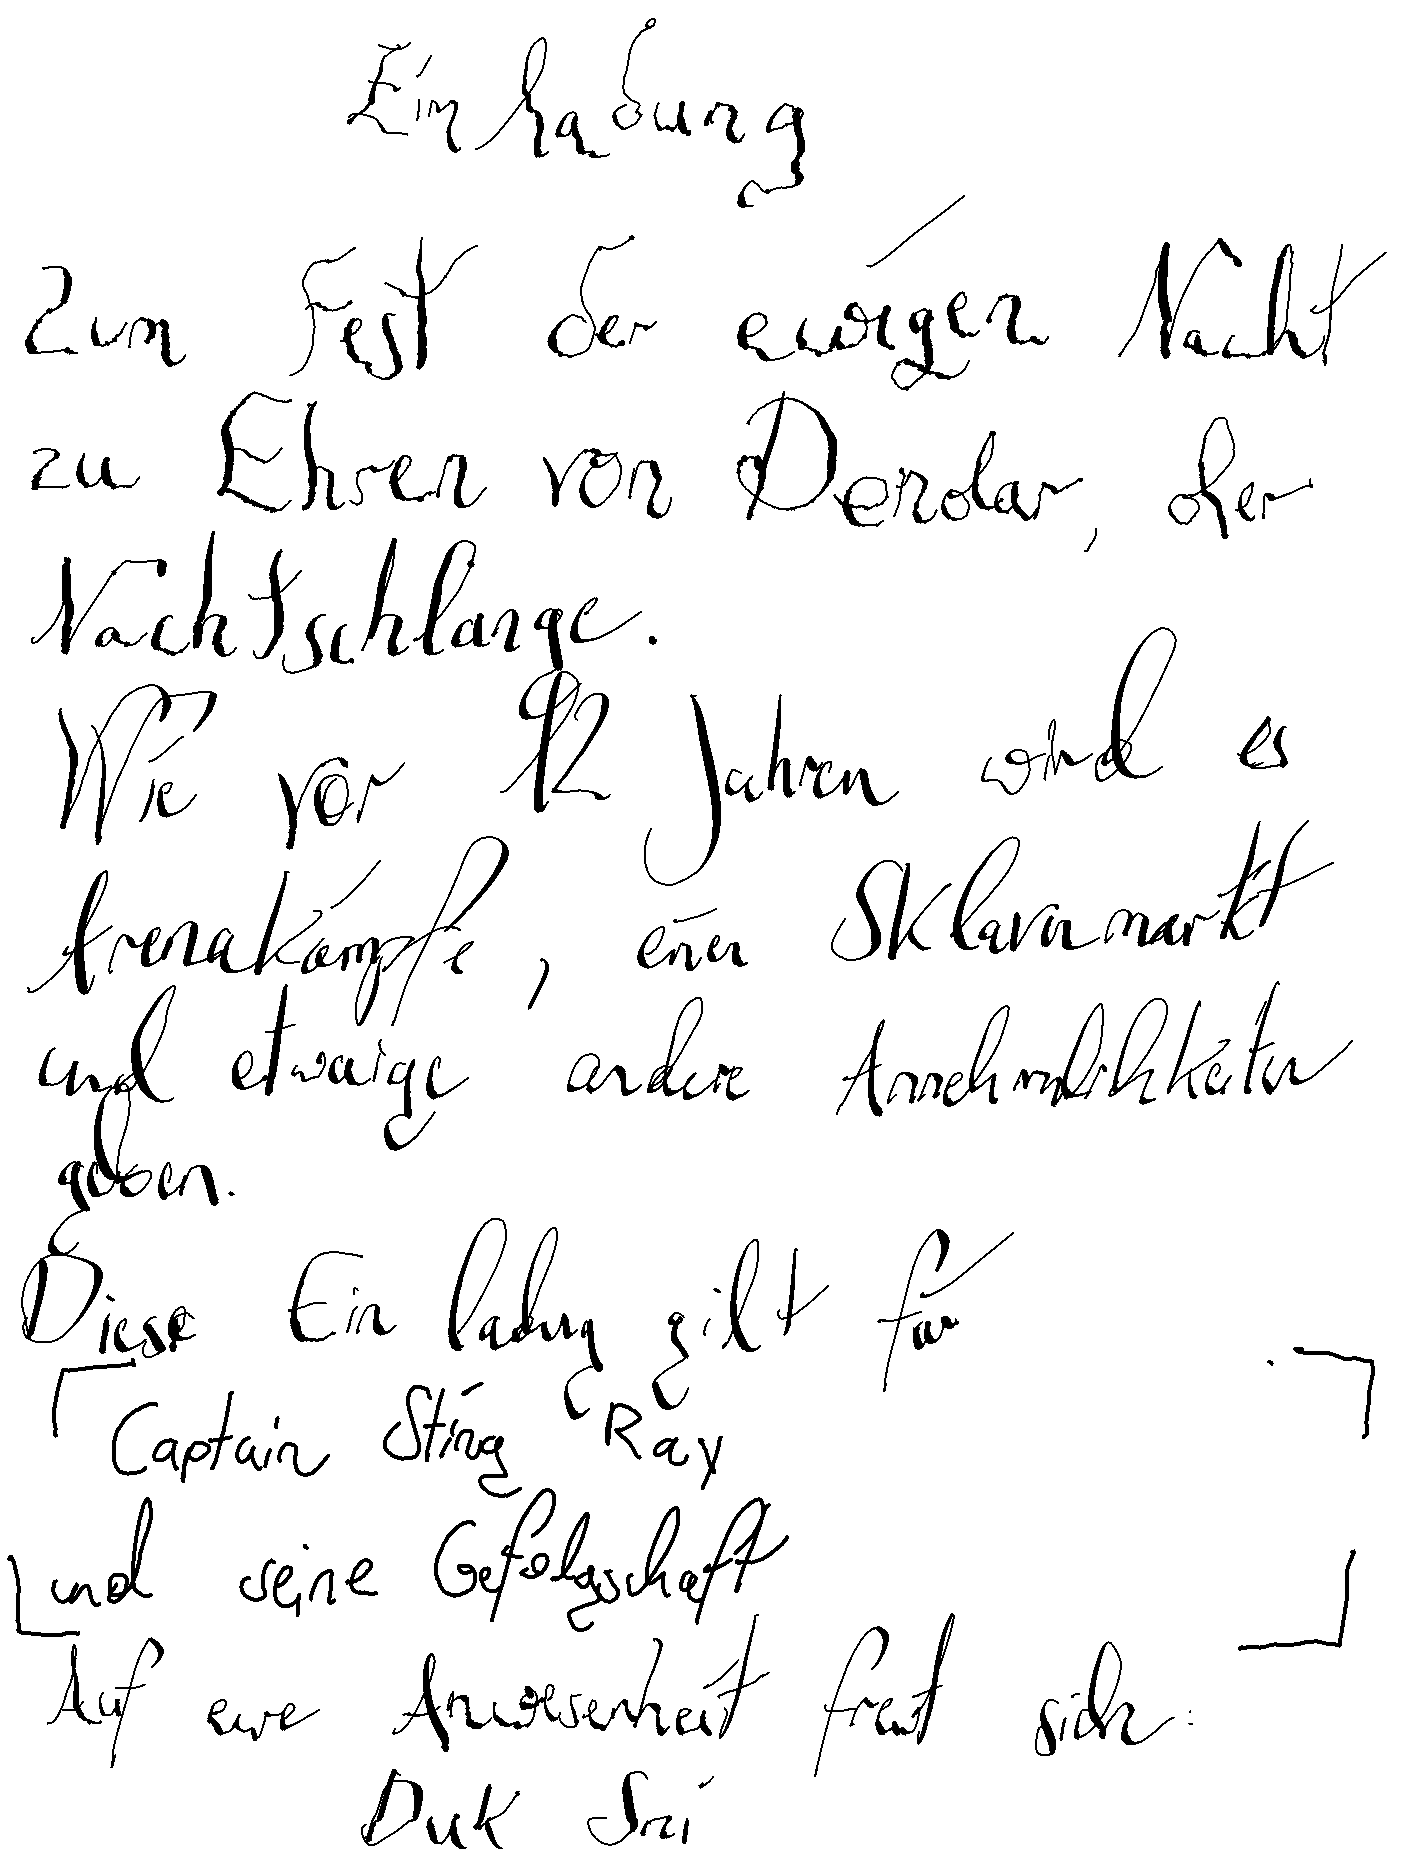 Einladung
Zum Fest der ewigen Nacht
zu Ehren von Dendar, der
Nachtschlange.
Wie vor 12 Jahren wird es
Arenakämpfe, einen Sklavenmarkt
und etwaige andere Annehmlichkeiten
geben.
Diese Einladung gilt für
Captain Sting Ray
und seine Gefolgschaft
Auf eure Anwesenheit freut sich:
Duk Sri